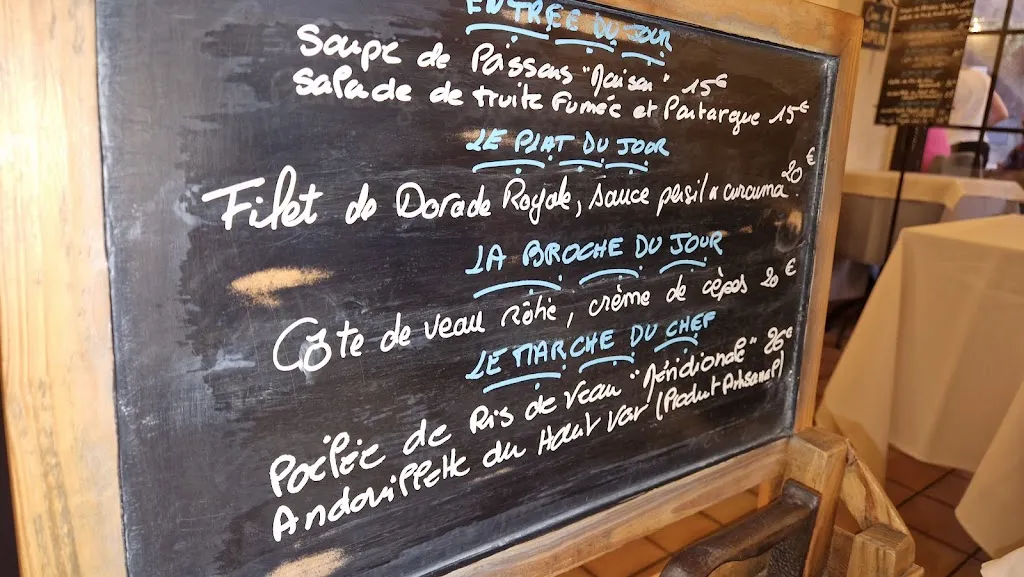 ENTRÉE DU JOUR
Soupe de Poissons "Maison" 15€
Salade de truite Fumée et Poutargue 15€
LE PLAT DU JOUR
Filet de Dorade Royale, sauce persil & curcuma 20€
LA BROCHE DU JOUR
Côte de veau rôtie, crème de cèpes 20€
LE MARCHE DU CHEF
Poêlée de Ris de veau "Méridionale" 26€
Andouillette du Haut Var (Produit Artisanal)